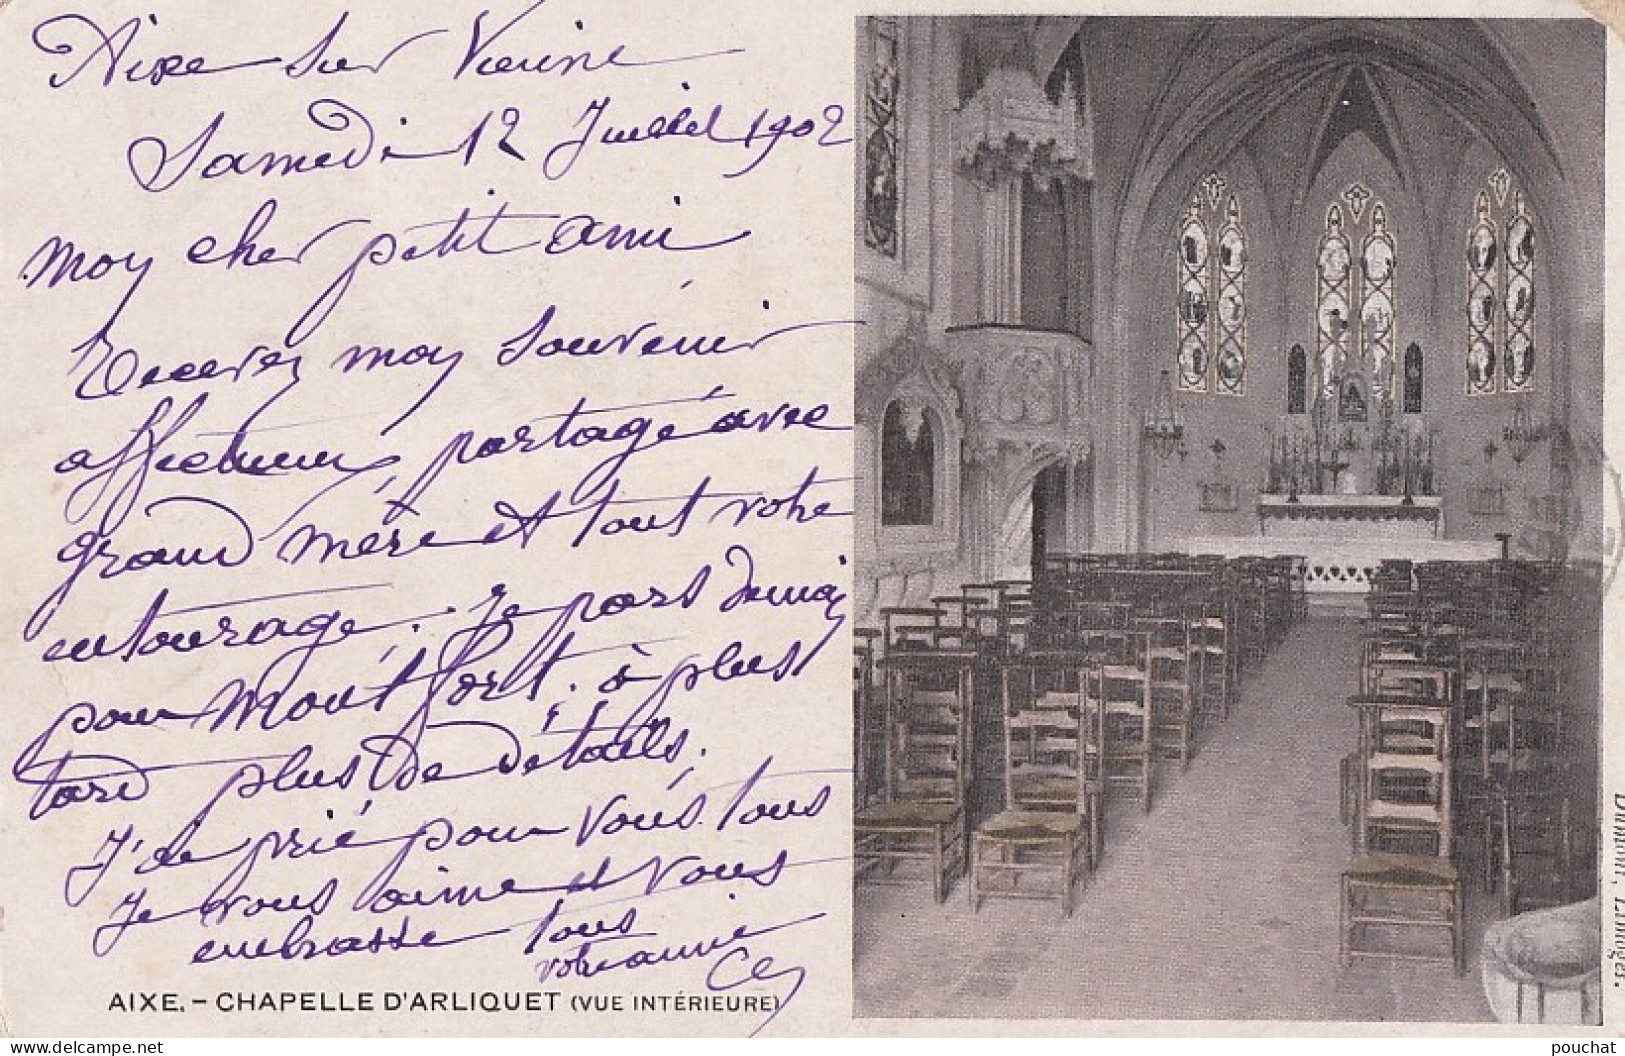 Aixe sur Vienne
Samedi 12 Juillet 1902
Mon cher petit ami
Recevez mon souvenir
affectueux, partagé avec
grand mère et tout votre
entourage. Je pars demain
pour Montfort. à plus
tard plus de détails.
J'ai prié pour vous tous
Je vous aime et vous
embrasse tous
votre amie
AIXE. - CHAPELLE D'ARLIQUET (VUE INTÉRIEURE)
Dumont, Limoges.
delcampe.net
pouchat